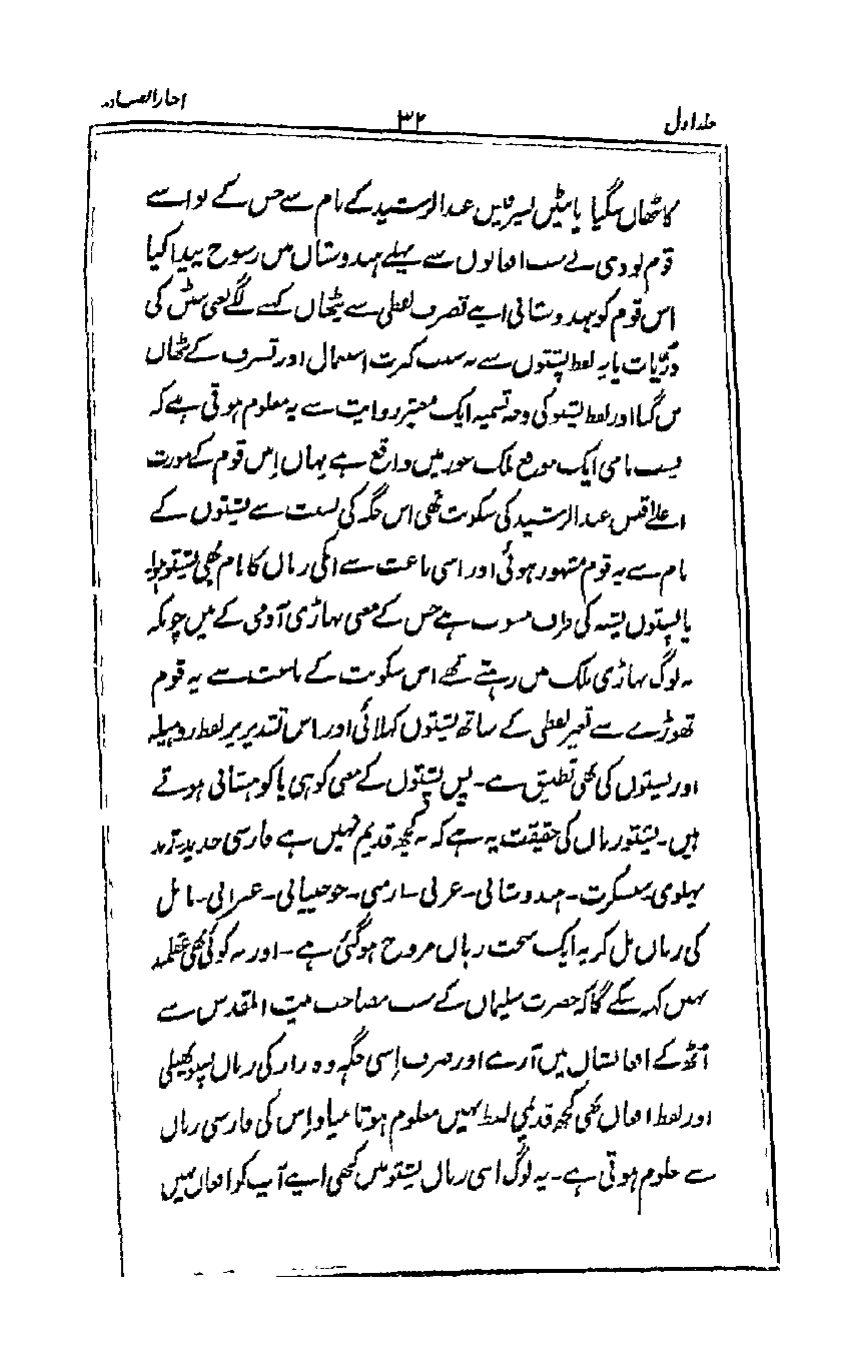 جلد اول
۳۲
اخبار الصنادید
کا ٹھان ہوگیا یا بیٹن پسر قیس عبدالرشید کے نام سے جس کے نواسے
قوم لودی نے سب افغانوں سے پہلے ہندوستان میں رسوخ پیدا کیا
اس قوم کو ہندوستانی اپنے تصرف لفظی سے پٹھان کہنے لگے یعنی بٹن کی
ذرّیات یا یہ لفظ پشتون سے بہ سبب کثرت استعمال اور تصرف کے پٹھان
بن گیا اور لفظ پشتو کی وجہ تسمیہ ایک معتبر روایت سے یہ معلوم ہوتی ہے کہ
پشت نامی ایک موضع ملک غور میں واقع ہے یہاں اِس قوم کے مورث
اعلےٰ قیس عبدالرشید کی سکونت تھی اس جگہ کی نسبت سے پشتون کے
نام سے یہ قوم مشہور ہوئی اور اسی باعث سے انکی زبان کا نام بھی پشتو ہوا
یا پشتون پشتہ کی طرف منسوب ہے جس کے معنی پہاڑی آدمی کے ہیں چونکہ
یہ لوگ پہاڑی ملک میں رہتے تھے اس سکونت کے باعث سے یہ قوم
تھوڑے سے تغیر لفظی کے ساتھ پشتون کہلائی اور اس تقدیر پر لفظ روہیلہ
اور پشتون کی بھی تطبیق ہے۔ پس پشتون کے معنی کوہی یا کوہستانی ہوتے
ہیں۔ پشتو زبان کی حقیقت یہ ہے کہ یہ کچھ قدیم نہیں ہے فارسی جدید۔ ژند
پہلوی۔ سنسکرت۔ ہندوستانی۔ عربی۔ ارمنی۔ جوجیانی۔ عبرانی۔ بابل
کی زبان مل کر یہ ایک سخت زبان مروج ہوگئی ہے۔ اور یہ کوئی بھی عقلمند
نہیں کہہ سکے گا کہ حضرت سلیمان کے سب مصاحب بیت المقدس سے
اٹھ کے افغانستان میں آرہے اور صرف اِسی جگہ وہ دربار کی زبان پشتو پھیلی
اور لفظ افغان بھی کچھ قدیمی لفظ نہیں معلوم ہوتا بنیاد اِس کی فارسی زبان
سے معلوم ہوتی ہے۔ یہ لوگ اسی زبان پشتو میں کبھی اپنے آپ کو افغان نہیں